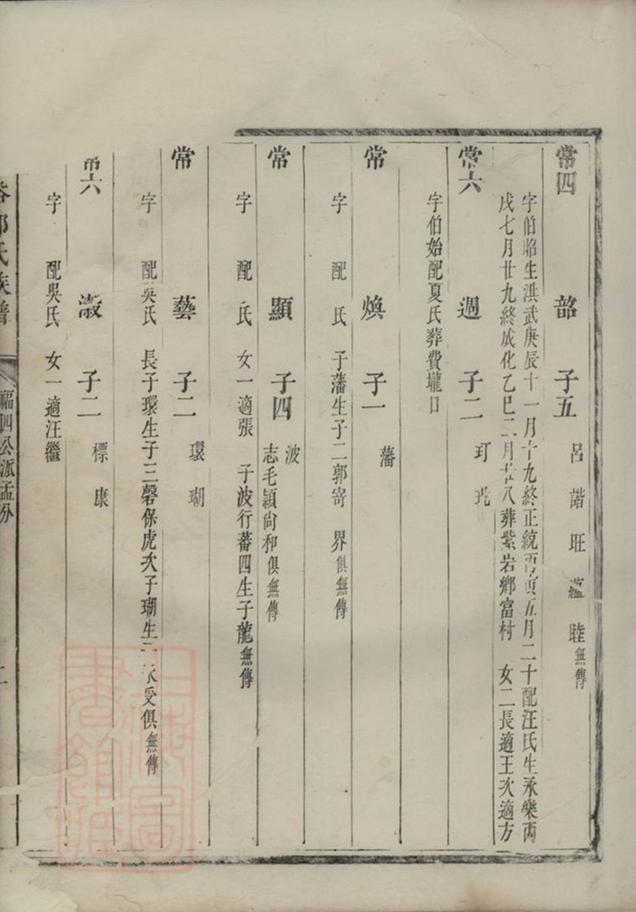 常四 韶 子五 呂 諧 旺 蘊 睦無傳
字伯焰生洪武庚辰十一月十九終正統五月二十配汪氏生永樂丙
戌七月廿九終成化乙巳二月廿八葬紫岩鄉富村 女二長適王次適方
常六 週 子二 玎 玧
字伯始配夏氏葬費壠口
常 煥 子一 藩
字 配 氏 子藩生子二郭寄 界俱無傳
常 顯 子四 波
志毛穎尚和俱無傳
字 配 氏 女一適張 子波行蕃四生子龍無傳
常 藝 子二 環 瑚
字 配吳氏 長子環生子三磬保虎次子瑚生二 受俱無傳
常六 淑 子二 標 康
字 配吳氏 女一適汪繼
氏族譜
福四公派孟分
上海圖書館藏